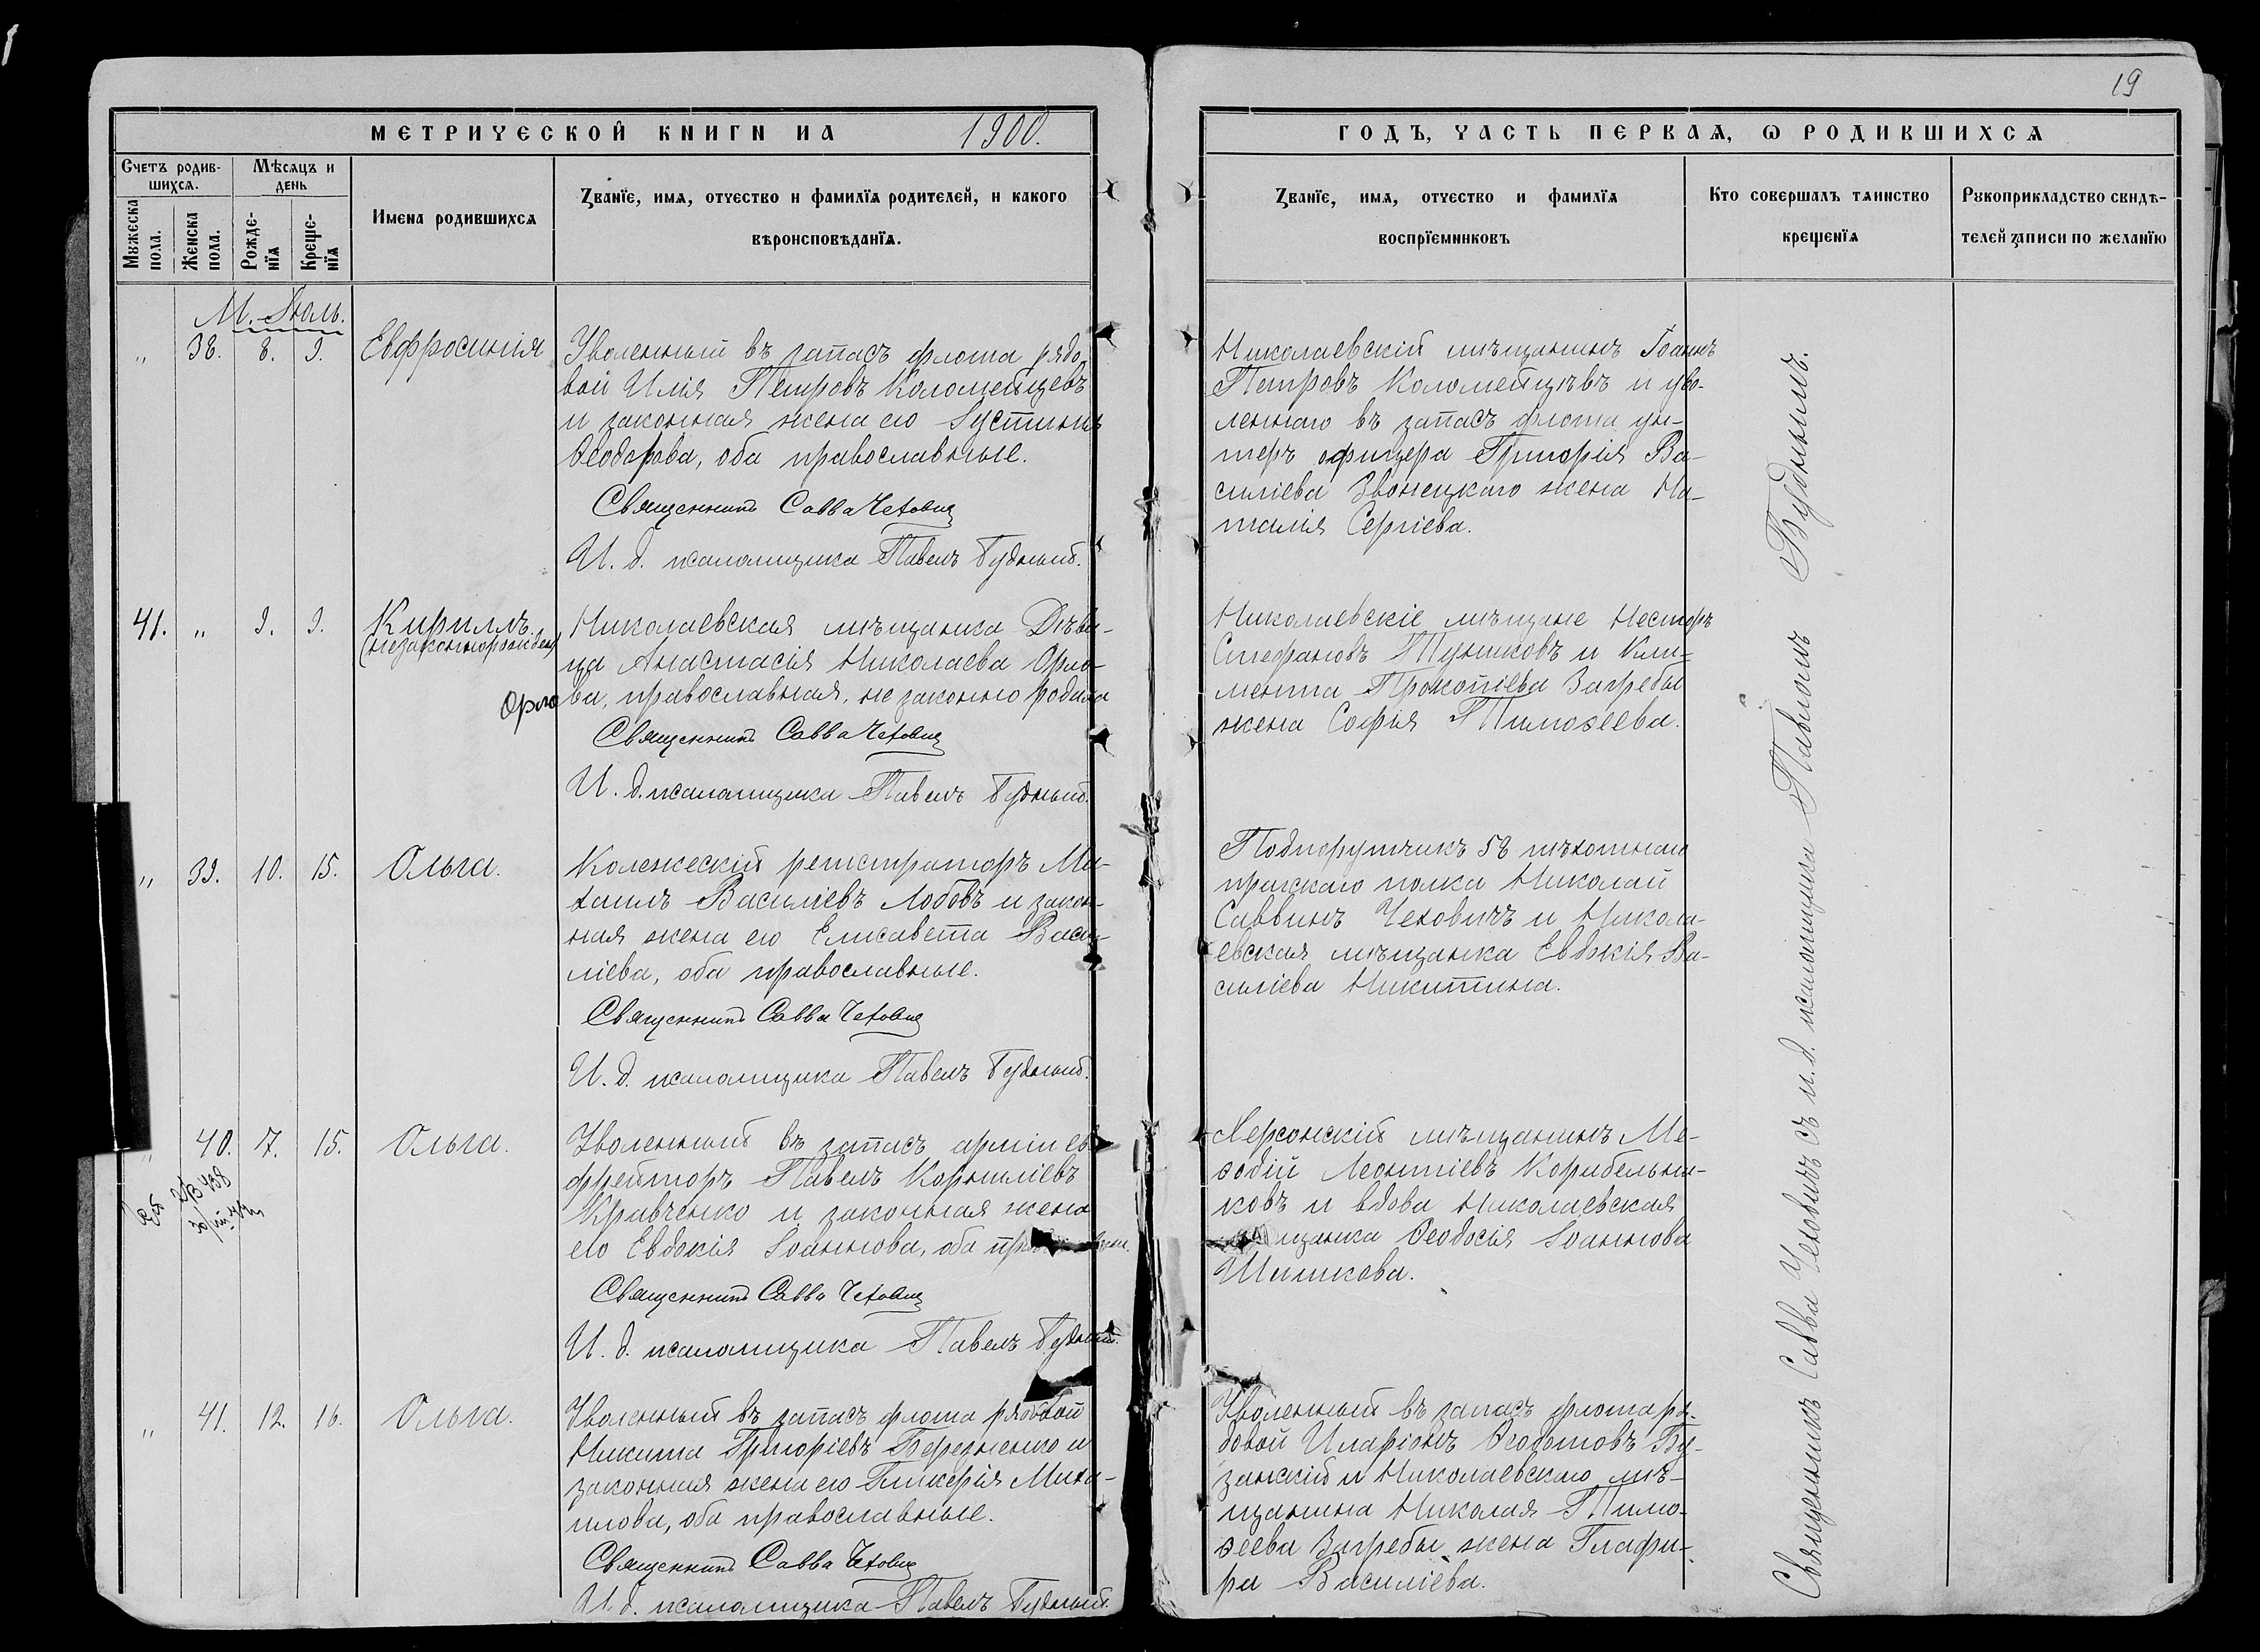 19
МЕТРИЧЕСКОЙ КНИГИ НА 1900.
ГОДЪ, ЧАСТЬ ПЕРВАЯ, Ѡ РОДИВШИХСЯ
Счетъ родив-
шихся.
Мужеска
пола.
Женска
пола.
Мѣсяцъ и
день
Рожде-
нїя
Креще-
нїя
Имена родившихся
Званїе, имя, отчество и фамилїя родителей, и какого
вѣроисповѣданїя.
Званїе, имя, отчество и фамилїя
воспрїемниковъ
Кто совершалъ таинство
крещенїя
Рукоприкладство свидѣ-
телей записи по желанїю
М. Іюль.
" 38. 8. 9. Евфросинія
Уволенный въ запасъ флота рядо-
вой Илія Петровъ Коломейцевъ
и законная жена его Іустина
Ѳеодорова, оба православные.
Священникъ Савва Чеховичъ
И. д. псаломщика Павелъ Будный.
Николаевскій мѣщанинъ Іоаннъ
Петровъ Коломейцевъ и уво-
леннаго въ запасъ флота ун-
теръ офицера Григорія Ва-
силіева Звонецкаго жена На-
талія Сергіева.
41. " 9. 9. Кириллъ
(незаконнорожден)
Николаевская мѣщанка Дѣви-
ца Анастасія Николаева Орло-
ва, православная, незаконно родила
Орло
Священникъ Савва Чеховичъ
И. д. псаломщика Павелъ Будный.
Николаевскіе мѣщане Несторъ
Стефановъ Тушковъ и Кли-
мента Прокопіева Загребы
жена Софія Тимоѳеева.
" 39. 10. 15. Ольга.
Колежескій регистраторъ Ми-
хаилъ Василіевъ Лобовъ и закон-
ная жена его Елисавета Васи-
ліева, оба православные.
Священникъ Савва Чеховичъ
И. д. псаломщика Павелъ Будный.
Подпорутчикъ 58 пѣхотнаго
прагскаго полка Николай
Саввинъ Чеховичъ и Никола-
евская мѣщанка Евдокія Ва-
силіева Никитина.
" 40. 7. 15. Ольга.
Уволенный въ запасъ арміи еф-
фрейторъ Павелъ Корниліевъ
Кравченко и законная жена
его Евдокія Іоаннова, оба
Священникъ Савва Чеховичъ
И. д. псаломщика Павелъ Будный.
Херсонскій мѣщанинъ Ме-
ѳодій Леонтіевъ Корабельни-
ковъ и вдова Николаевская
щанка Ѳеодосія Іоаннова
Шишкова.
" 41. 12. 16. Ольга.
Уволенный въ запасъ флота рядовой
Никита Григоріевъ Березненко и
законная жена его Гликерія Миха-
илова, оба православные.
Священникъ Савва Чеховичъ
И. д. псаломщика Павелъ Будный.
Уволенный въ запасъ флота ря-
довой Иларіонъ Ѳеодотовъ Бу-
занскій и Николаевскаго мѣ-
щанина Николая Тимо-
ѳеева Загребы жена Глафи-
ра Василіева.
Священникъ Савва Чеховичъ съ и. д. псаломщика Павломъ Буднымъ.